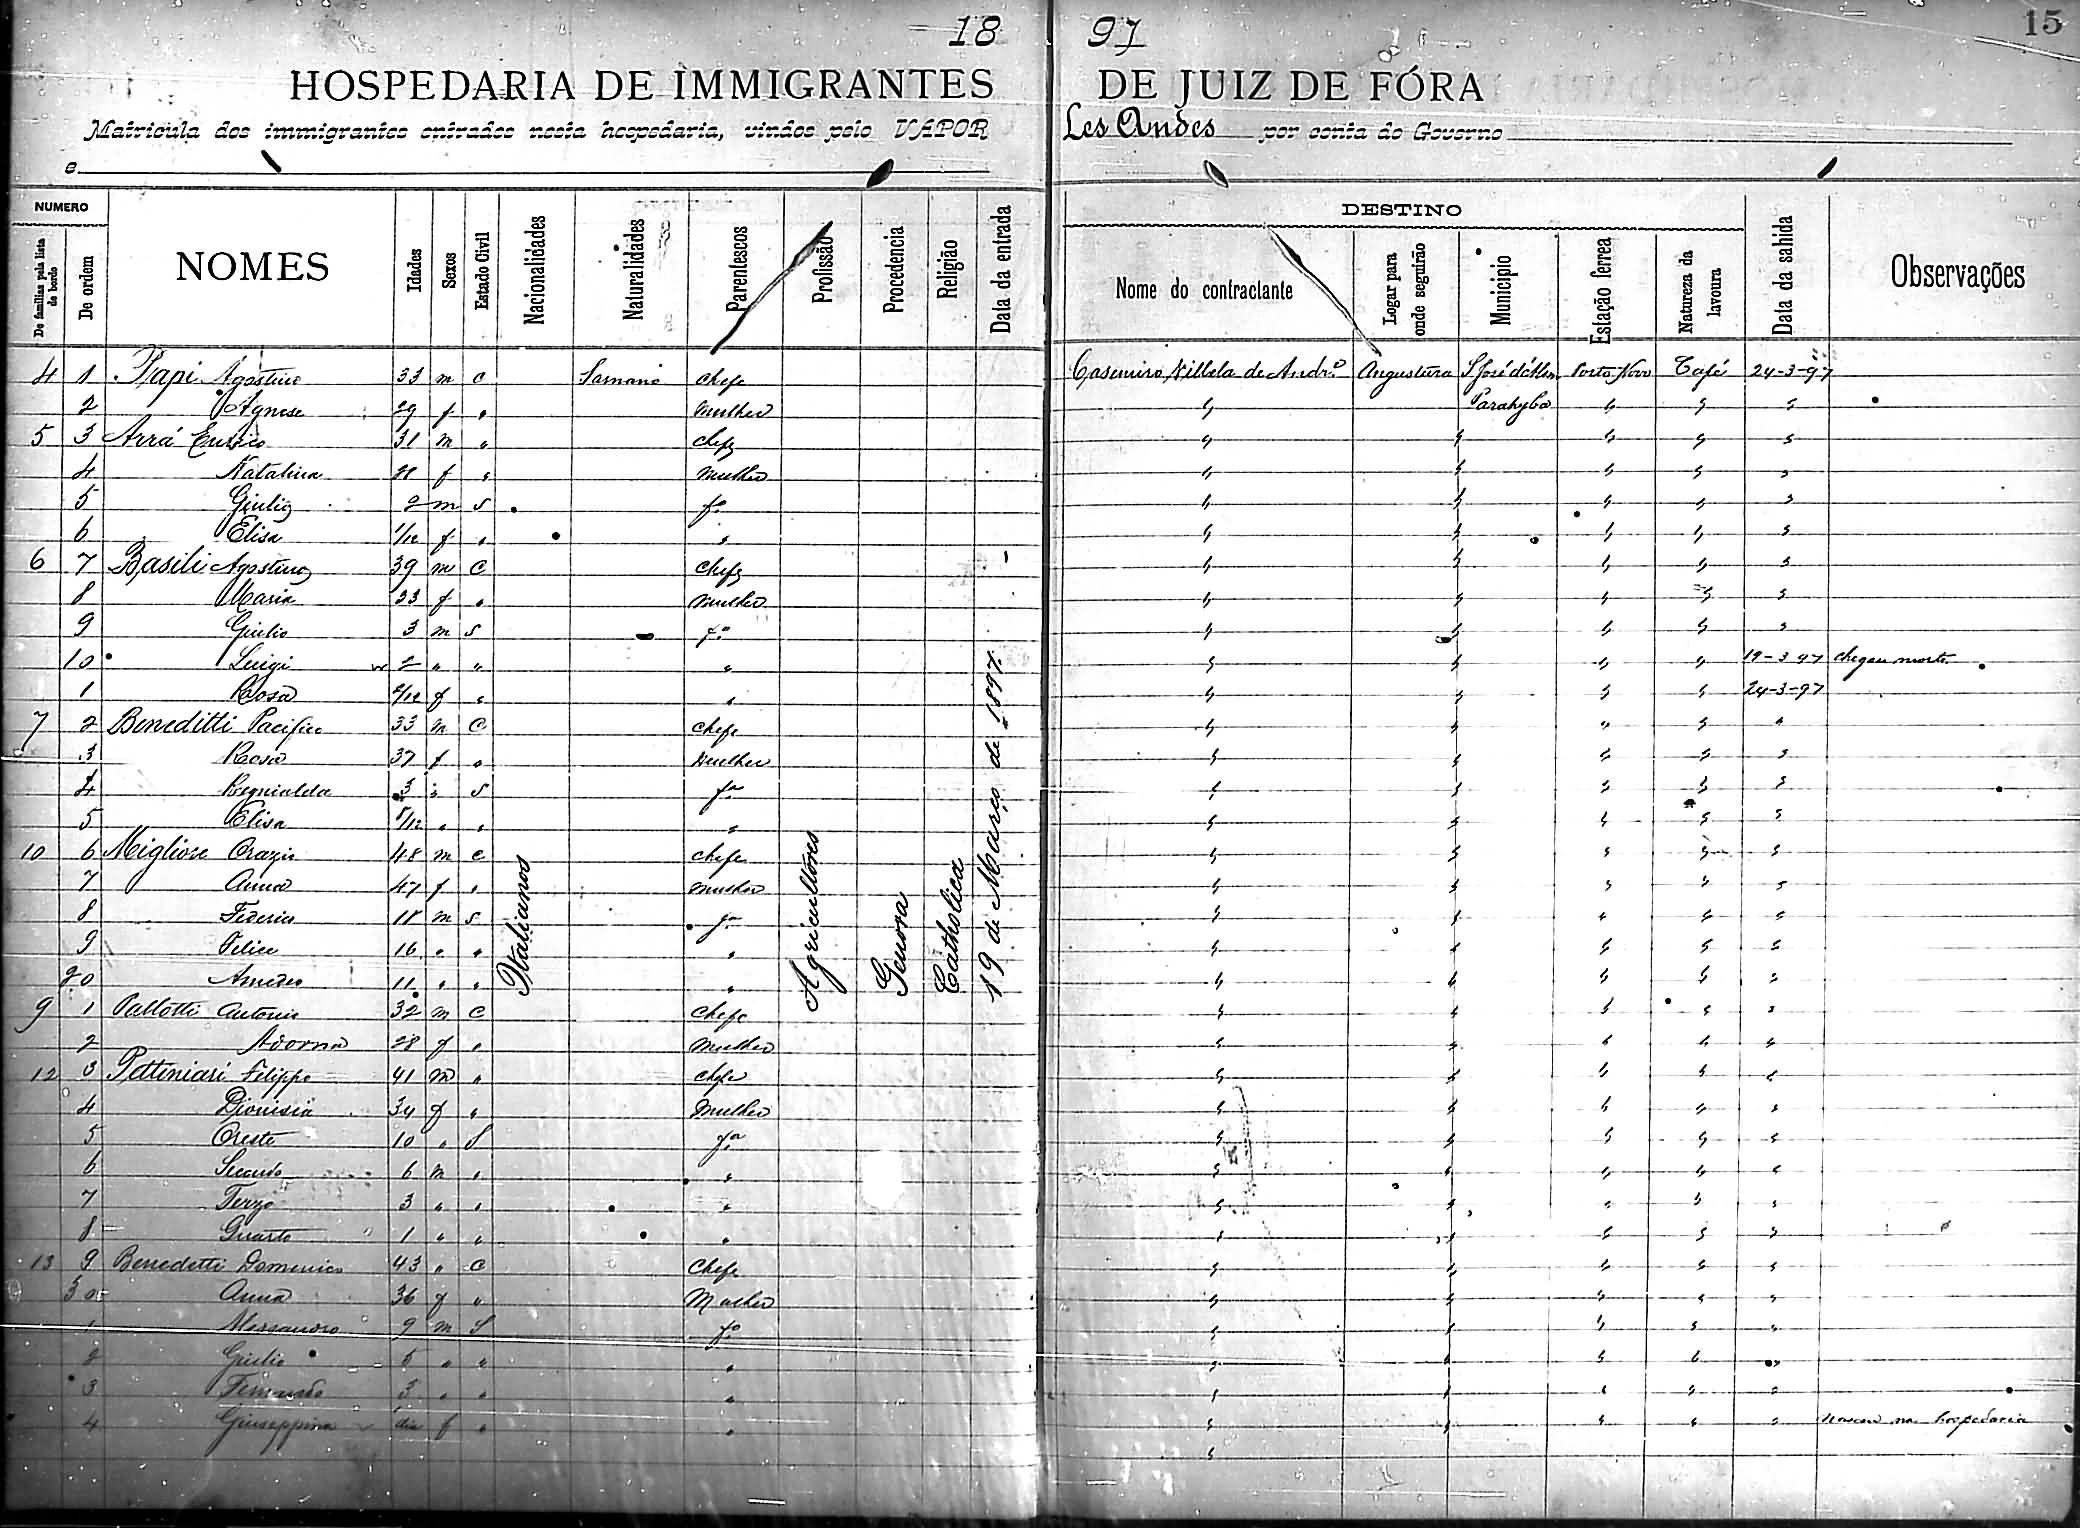 18 97 15
HOSPEDARIA DE IMMIGRANTES DE JUIZ DE FÓRA
Matricula dos immigrantes entrados nesta hospedaria, vindos pelo VAPOR Les Andes por conta do Governo
e
NUMERO
De familias pela lista de bordo
De ordem
NOMES
Idades
Sexos
Estado Civil
Nacionalidades
Naturalidades
Parentescos
Profissão
Procedencia
Religião
Data da entrada
DESTINO
Nome do contractante
Logar para onde seguirão
Municipio
Estação ferrea
Natureza da lavoura
Data da sahida
Observações
4 1 Papi Agostino 33 m c Sarnano chefe Casemiro Villela de Andr.e Angustura S José d'Além Porto Novo Café 24-3-97
2 Agnese 29 f " mulher " Parahyba " " "
5 3 Arrá Enrico 31 m " chefe " " " " "
4 Natalina f " mulher " " " " "
5 Giulio 2 m S fo " " " " "
6 Elisa 1/12 f " " " " " " "
6 7 Basili Agostino 39 m C chefe " " " " "
8 Maria 33 f " mulher " " " " "
9 Giulio 3 m s fo " " " " "
10 Luigi 2 " " " " " " " 19-3 97 chegou morto.
1 Rosa 2/12 f " " " " " " 24-3-97
7 2 Beneditti Pacifico 33 m C chefe " " " " "
3 Rosa 37 f " mulher " " " " "
4 3 " S fa " " " " "
5 Elisa 8/12 " " " " " " " "
10 6 Migliore Orazio 48 m c chefe " " " " "
7 Anna 47 f " mulher " " " " "
8 Federico 18 m s fo " " " " "
9 Felice 16 " " " " " " " "
20 Amedeo 11 " " " " " " " "
9 1 Pallotti Antonio 32 m C chefe " " " " "
2 Adorna 28 f " mulher " " " " "
12 3 Pettiniari Filippo 41 m " chefe " " " " "
4 Dionisia 34 f " mulher " " " " "
5 Oreste 10 " S fo " " " " "
6 Secundo 6 m " " " " " " "
7 Terzo 3 " " " " " " " "
8 Quarto 1 " " " " " " " "
13 9 Benedetti Domenico 43 " C chefe " " " " "
30 Anna 36 f " Mulher " " " " "
1 Alessandro 9 m S fo " " " " "
2 Giulio 5 " " " " " " " "
3 Fernando 3 " " " " " " " "
4 Giuseppina dia f " " " " " " " nasceu na hospedaria
"
Italianos
Agricultores
Genova
Catholica
19 de Março de 1897.